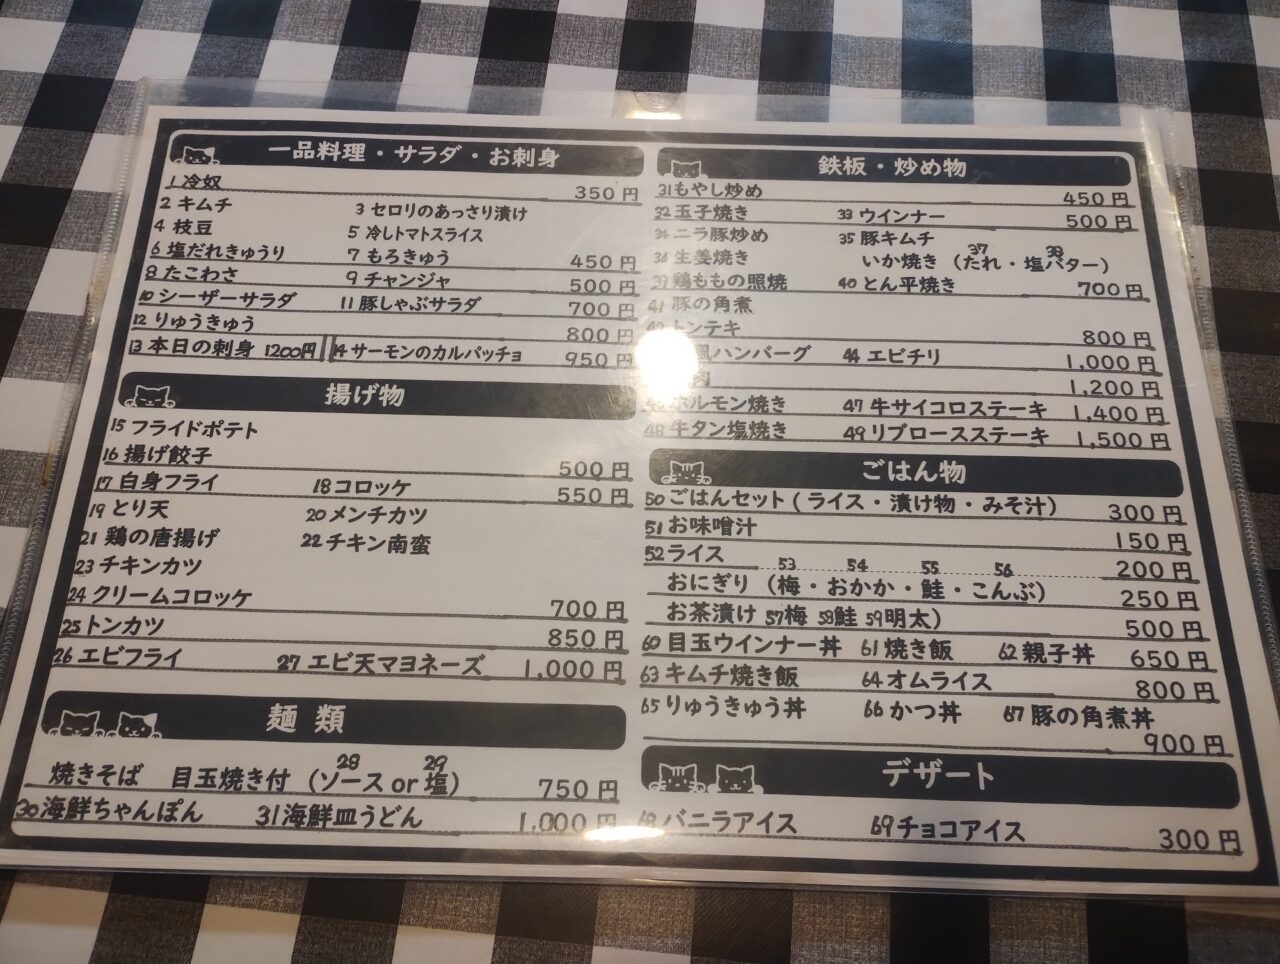 一品料理・サラダ・お刺身
1 冷奴 350円
2 キムチ 3 セロリのあっさり漬け
4 枝豆 5 冷しトマトスライス
6 塩だれきゅうり 7 もろきゅう 450円
8 たこわさ 9 チャンジャ 500円
10 シーザーサラダ 11 豚しゃぶサラダ 700円
12 りゅうきゅう 800円
13 本日の刺身 1200円 14 サーモンのカルパッチョ 950円
揚げ物
15 フライドポテト
16 揚げ餃子 500円
17 白身フライ 18 コロッケ 550円
19 とり天 20 メンチカツ
21 鶏の唐揚げ 22 チキン南蛮
23 チキンカツ
24 クリームコロッケ 700円
25 トンカツ 850円
26 エビフライ 27 エビ天マヨネーズ 1,000円
麺類
28 29
焼きそば 目玉焼き付 (ソース or 塩) 750円
30 海鮮ちゃんぽん 31 海鮮皿うどん 1,000円
鉄板・炒め物
31 もやし炒め 450円
32 玉子焼き 33 ウインナー 500円
34 ニラ豚炒め 35 豚キムチ
36 生姜焼き いか焼き (たれ・塩バター)
37 38
鶏ももの照焼 40 とん平焼き 700円
41 豚の角煮
トンテキ 800円
風ハンバーグ 44 エビチリ 1,000円
1,200円
ホルモン焼き 47 牛サイコロステーキ 1,400円
48 牛タン塩焼き 49 リブロースステーキ 1,500円
ごはん物
50 ごはんセット (ライス・漬け物・みそ汁) 300円
51 お味噌汁 150円
52 ライス 200円
53 54 55 56
おにぎり (梅・おかか・鮭・こんぶ) 250円
お茶漬け 57梅 58鮭 59明太) 500円
60 目玉ウインナー丼 61 焼き飯 62 親子丼 650円
63 キムチ焼き飯 64 オムライス 800円
65 りゅうきゅう丼 66 かつ丼 67 豚の角煮丼
900円
デザート
68 バニラアイス 69 チョコアイス 300円